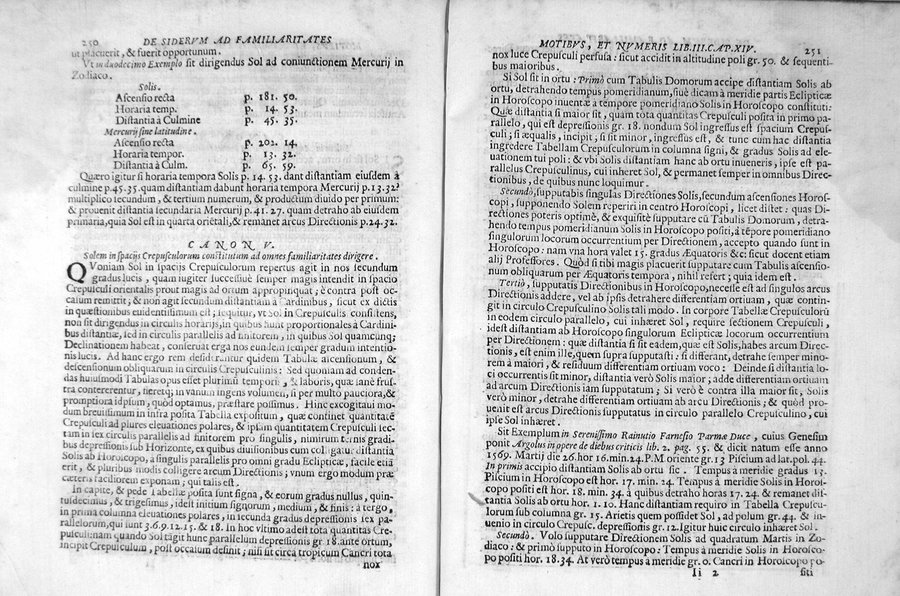 250 DE SIDERVM AD FAMILIARITATES
ut placuerit, & fuerit opportunum.
Vt in duodecimo Exemplo sit dirigendus Sol ad coniunctionem Mercurij in
Zodiaco.
Solis.
Ascensio recta p. 181. 50.
Horaria temp. p. 14. 53.
Distantia à Culmine p. 45. 35.
Mercurij sine latitudine.
Ascensio recta p. 202. 14.
Horaria tempor. p. 13. 32.
Distantia à Culm. p. 65. 59.
Quæro igitur si horaria tempora Solis p. 14. 53. dant distantiam eiusdem à
culmine p. 45. 35. quam distantiam dabunt horaria tempora Mercurij p. 13. 32?
multiplico secundum, & tertium numerum, & productum diuido per primum:
& prouenit distantia secundaria Mercurij p. 41. 27. quam detraho ab eiusdem
primaria, quia Sol est in quarta orientali, & remanet arcus Directionis p. 24. 32.
CANON V.
Solem in spacijs Crepusculorum constitutum ad omnes familiaritates dirigere.
QVoniam Sol in spacijs Crepusculorum repertus agit in nos secundum
gradus lucis, quam iugiter successiuè semper magis intendit in spacio
Crepusculi orientalis prout magis ad ortum appropinquat; è contra post oc-
casum remittit; & non agit secundum distantiam à Cardinibus, sicut ex dictis
in quæstionibus euidentissimum est; sequitur, vt Sol in Crepusculis consistens,
non sit dirigendus in circulis horarijs, in quibus sunt proportionales à Cardini-
bus distantiæ, sed in circulis parallelis ad finitorem, in quibus Sol quamcunq;
Declinationem habeat, conseruat erga nos eundem semper gradum intentio-
nis lucis. Ad hanc ergo rem desiderantur quidem Tabulæ ascensionum, &
descensionum obliquarum in circulis Crepusculinis: Sed quoniam ad conden-
das huiusmodi Tabulas opus esset plurimũ temporis, & laboris, quæ sanè frus-
tra contererentur, fieretq; in vanum ingens volumen, si per multo pauciora, &
promptiora id ipsum, quod optamus, præstare possimus. Hinc excogitaui mo-
dum breuissimum in infra posita Tabella expositum, quæ continet quantitatẽ
Crepusculi ad plures eleuationes polares, & ipsam quantitatem Crepusculi sec-
tam in sex circulis parallelis ad finitorem pro singulis, nimirum ternis gradi-
bus depressionis sub Horizonte, ex quibus diuisionibus cum colligatur distantia
Solis ab Horoscopo, à singulis parallelis pro omni gradu Eclipticæ, facile etiã
erit, & pluribus modis colligere arcum Directionis; vnum ergo modum præ
cæteris faciliorem exponam; qui talis est.
In capite, & pede Tabellæ posita sunt signa, & eorum gradus nullus, quin-
tusdecimus, & trigesimus, idest initium signorum, medium, & finis: à tergo,
in prima columna eleuationes polares, in secunda gradus depressionis sex pa-
rallelorum, qui sunt 3. 6. 9. 12. 15. & 18. In hoc vltimo adest tota quantitas Cre-
pusculi, nam quando Sol tagit hunc parallelum depressionis gr. 18. ante ortum,
incipit Crepusculum, post occasum desinit; nisi sit circa tropicum Cancri tota
nox
MOTIBVS, ET NVMERIS LIB. III. CAP. XIV. 251
nox luce Crepusculi persusa: sicut accidit in altitudine poli gr. 50. & sequenti-
bus maioribus.
Si Sol sit in ortu: Primò cum Tabulis Domorum accipe distantiam Solis ab
ortu, detrahendo tempus pomeridianum, siuè dicam à meridie partis Eclipticæ
in Horoscopo inuentæ à tempore pomeridiano Solis in Horoscopo constituti:
Quæ distantia si maior sit, quam tota quantitas Crepusculi posita in primo pa-
rallelo, qui est depressionis gr. 18. nondum Sol ingressus est spacium Crepus-
culi; si æqualis, incipit, si sit minor, ingressus est, & tunc cum hac distantia
ingredere Tabellam Crepusculorum in columna signi, & gradus Solis ad ele-
uationem tui poli: & vbi Solis distantiam hanc ab ortu inueneris, ipse est pa-
rallelus Crepusculinus, cui inheret Sol, & permanet semper in omnibus Direc-
tionibus, de quibus nunc loquimur.
Secundò, supputabis singulas Directiones Solis, secundum ascensiones Horos-
copi, supponendo Solem reperiri in centro Horoscopi, licet distet: quas Di-
rectiones poteris optimè, & exquisitè supputare cũ Tabulis Domorum, detra-
hendo tempus pomeridianum Solis in Horoscopo positi, à tẽpore pomeridiano
singulorum locorum occurrentium per Directionem, accepto quando sunt in
Horoscopo: nam vna hora valet 15. gradus Æquatoris &c: sicut docent etiam
alij Professores. Quòd si tibi magis placuerit supputare cum Tabulis ascensio-
num obliquarum per Æquatoris tempora, nihil refert; quia idem est.
Tertiò, supputatis Directionibus in Horoscopo, necesse est ad singulos arcus
Directionis addere, vel ab ipsis detrahere differentiam ortiuam, quæ contin-
git in circulo Crepusculino Solis tali modo. In corpore Tabellæ Crepusculorũ
in eodem circulo parallelo, cui inhæret Sol, require sectionem Crepusculi,
idest distantiam ab Horoscopo singulorum Eclipticæ locorum occurrentium
per Directionem: quæ distantia si sit eadem, quæ est Solis, habes arcum Direc-
tionis, est enim ille, quem supra supputasti: si differant, detrahe semper mino-
rem à maiori, & residuum differentiam ortiuam voco: Deinde si distantia lo-
ci occurrentis sit minor, distantia verò Solis maior; adde differentiam ortiuam
ad arcum Directionis iam supputatum; Si verò è contra illa maior sit, Solis
verò minor, detrahe differentiam ortiuam ab arcu Directionis; & quòd pro-
uenit est arcus Directionis supputatus in circulo parallelo Crepusculino, cui
ipse Sol inhæret.
Sit Exemplum in Serenissimo Rainutio Farnesio Parmæ Duce, cuius Genesim
ponit Argolus in opere de diebus criticis lib. 2. pag. 55. & dicit natum esse anno
1569. Martij die 26. hor 16. min. 24. P.M. oriente gr. 13 Piscium ad lat. pol. 44.
In primis accipio distantiam Solis ab ortu sic. Tempus à meridie gradus 13.
Piscium in Horoscopo est hor. 17. min. 24. Tempus à meridie Solis in Horos-
copo positi est hor. 18. min. 34. à quibus detraho horas 17. 24. & remanet dis-
tantia Solis ab ortu hor. 1. 10. Hanc distantiam requiro in Tabella Crepuscu-
lorum sub columna gr. 15. Arietis quem possidet Sol, ad polum gr. 44. & in-
uenio in circulo Crepusc. depressionis gr. 12. Igitur hunc circulo inhæret Sol.
Secundò. Volo supputare Directionem Solis ad quadratum Martis in Zo-
diaco: & primò supputo in Horoscopo: Tempus à meridie Solis in Horosco-
po positi hor. 18. 34. At verò tempus à meridie gr. 0. Cancri in Horoscopo po-
Ii 2 siti